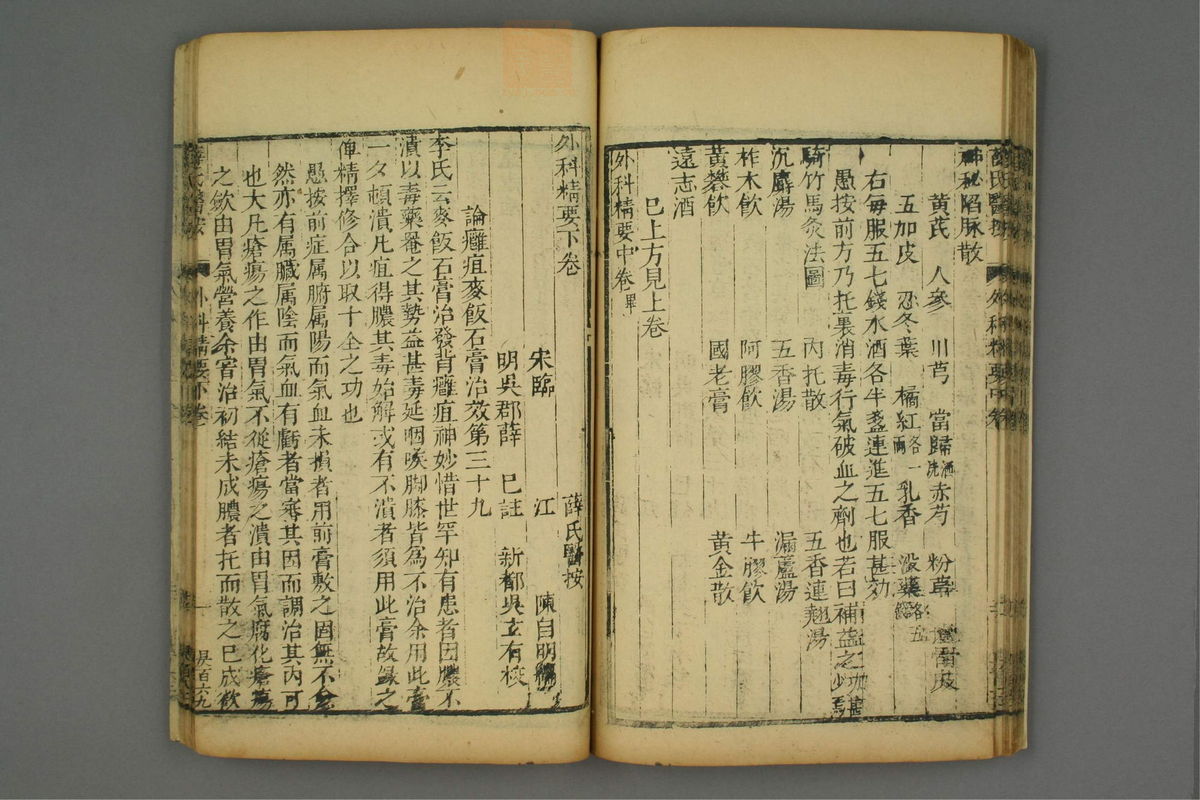 薛氏醫按 外科精要中卷
神秘陷脉散
黃芪 人參 川芎 當歸酒洗 赤芍 粉草
五加皮 忍冬葉 橘紅各一兩 乳香 沒藥各五錢
右每服五七錢水酒各半盞連進五七服甚効
愚按前方乃托裏消毒行氣破血之劑也若曰補益之功甚少焉
騎竹馬灸法圖 內托散 五香連翹湯
沉麝湯 五香湯 漏蘆湯
柞木飲 阿膠飲 牛膠飲
黃礬飲 國老膏 黃金散
遠志酒
已上方見上卷
外科精要中卷畢
外科精要下卷 薛氏醫按
宋臨 江 陳自明編
明吳郡薛 已註 新都吳玄有校
論癰疽麥飯石膏治效第三十九
李氏云麥飯石膏治發背癰疽神妙惜世罕知有患者因膿不
潰以毒藥罨之其勢益甚毒延咽喉脚膝皆為不治余用此膏
一夕頓潰凡疽得膿其毒始解或有不潰者須用此膏故錄之
俾精擇修合以取十全之功也
愚按前症属腑属陽而氣血未損者用前膏敷之固無不愈
然亦有属臟属陰而氣血有虧者當審其因而調治其內可
也大凡瘡瘍之作由胃氣不從瘡瘍之潰由胃氣腐化瘡瘍
之斂由胃氣營養余嘗治初結未成膿者托而散之已成欲
薛氏醫按 外科精要下卷 一 昃百六九